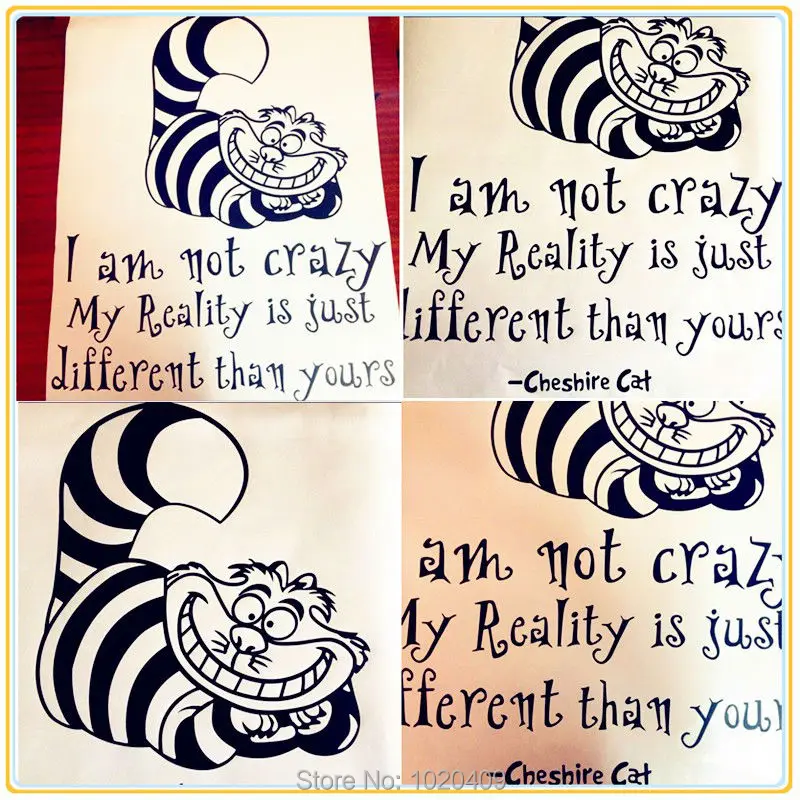 I am not crazy
My Reality is just
different than yours
I am not crazy
My Reality is just
lifferent than yours
-Cheshire Cat
am not crazy
My Reality is just
fferent than your
-Cheshire Cat
Store No: 1020409